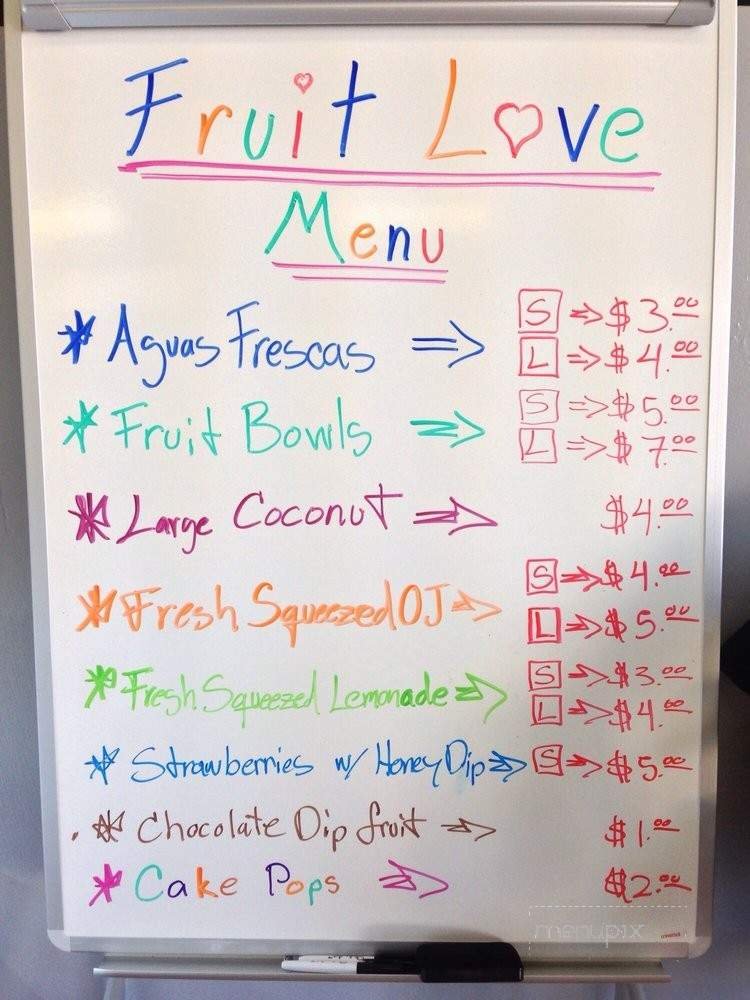 Fruit Love
Menu
* Aguas Frescas ⇒ S ⇒ $3.00
L ⇒ $4.00
* Fruit Bowls ⇒ S ⇒ $5.00
L ⇒ $7.00
* Large Coconut ⇒ $4.00
* Fresh Squeezed OJ ⇒ S ⇒ $4.00
L ⇒ $5.00
* Fresh Squeezed Lemonade ⇒ S ⇒ $3.00
L ⇒ $4.00
* Strawberries w/ Honey Dip ⇒ S ⇒ $5.00
* Chocolate Dip fruit ⇒ $1.00
* Cake Pops ⇒ $2.00
menupix